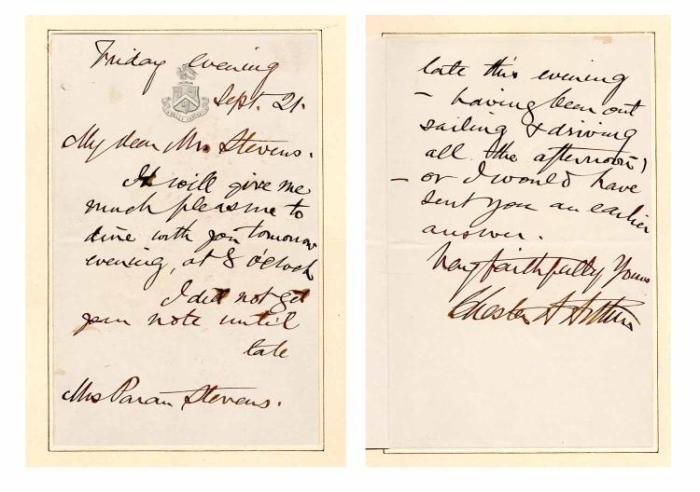 Friday evening
Sept. 21.
My dear Mrs. Stevens.
It will give me
much pleasure to
dine with you tomorrow
evening, at 8 o'clock
I did not get
your note until
late
Mrs Paran Stevens.
late this evening
– having been out
sailing & driving
all the afternoon,
– or I would have
sent you an earlier
answer.
Very faithfully Yours
Chester A Arthur